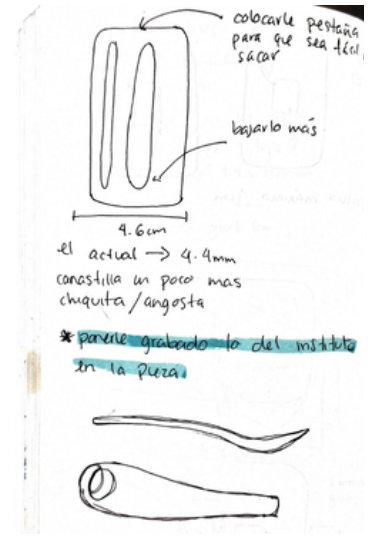 colocarle pestaña
para que sea fácil
sacar
bajarlo más
4.6cm
el actual → 4.4mm
canastilla un poco mas
chiquita/angosta
* ponerle grabado lo del instituto
en la pieza.